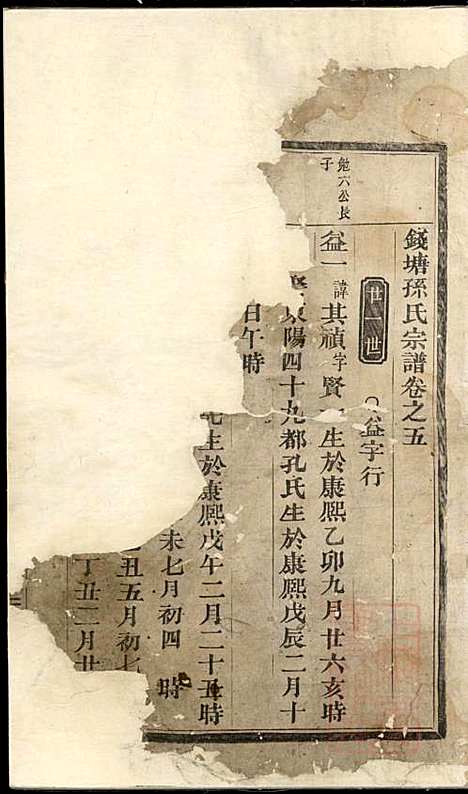 錢塘孫氏宗譜卷之五
廿一世
益字行
勉六公長子
益一 諱其禎字賢 生於康熙乙卯九月廿六亥時
東陽四十九都孔氏生於康熙戊辰二月十
日午時
生於康熙戊午二月二十丑時
未七月初四 時
丑五月初七
丁丑二月廿